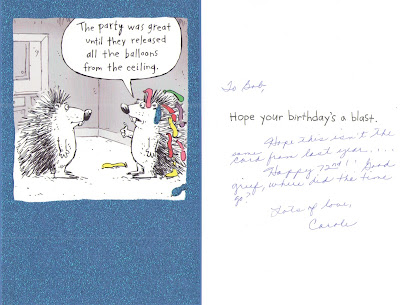 The party was great
until they released
all the balloons
from the ceiling.
To Bob,
Hope your birthday's a blast.
Hope this isn't the
same card from last year....
Happy 72nd!! Good
grief, where did the time
go?
Lots of love,
Carole